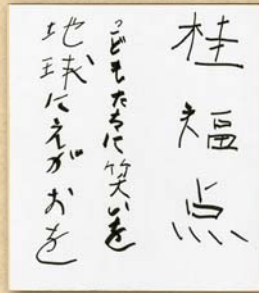 桂福点
こどもたちに笑いを
地球にえがおを